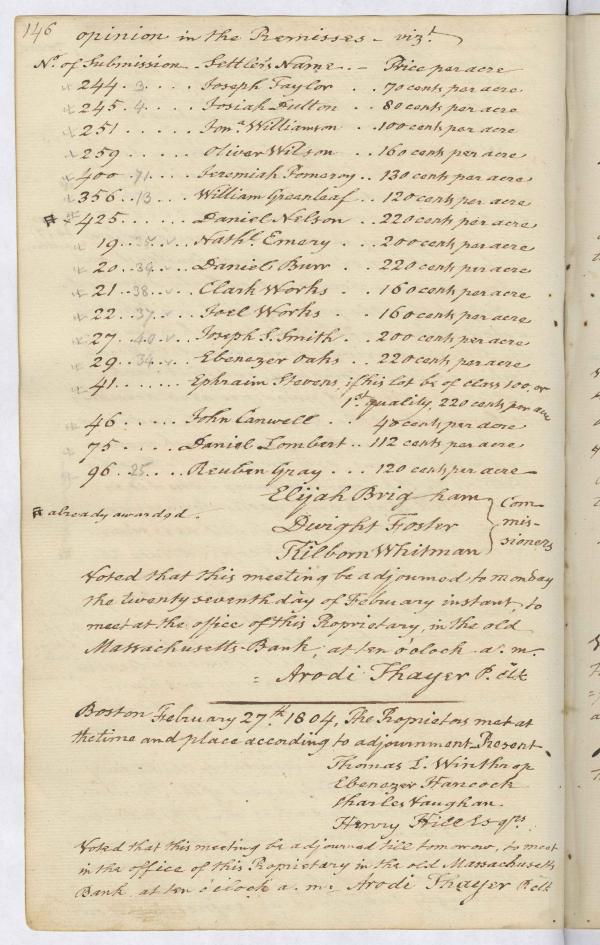 146
opinion in the Premisses - vizt.
No. of Submission - Settler's Name - Price per acre
244 . 3 . . . . Joseph Taylor . . 70 cents per acre
245 . 4 . . . . Josiah Dutton . . 80 cents per acre
251 . . . . . . Jona. Williamson . 100 cents per acre
259 . . . . . . Oliver Wilson . . 160 cents per acre
400 . 71 . . . . Jeremiah Pomeroy . . 130 cents per acre
356 . . 13 . . . William Greenleaf . . 120 cents per acre
425 . . . . . . Daniel Nelson . . 220 cents per acre
19 . . 35 . . Nathl. Emery . . . 200 cents per acre
20 . . 36 . . Daniel Burr . . 220 cents per acre
21 . . 38 . . Clark Works . . 160 cents per acre
22 . . 37 . . Joel Works . . 160 cents per acre
27 . . 40 . . Joseph S. Smith . . 200 cents per acre
29 . . 34 . . Ebenezer Oaks . . 220 cents per acre
41 . . . . . . Ephraim Stevens, if his lot be of class 100, or
1st. quality, 220 cents per acre
46 . . . . . John Canwell . . 40 cents per acre
75 . . . . . Daniel Lombert . . 112 cents per acre
96 . 25 . . . Reuben Gray . . . 120 cents per acre -
Elijah Brigham
already awarded.
Dwight Foster
Kilborn Whitman
Com-
mis-
sioners
Voted that this meeting be adjourned to monday
the twenty seventh day of February instant, to
meet at the office of this Proprietary, in the old
Massachusetts-Bank, at ten o'clock a. m.
= Arodi Thayer P. clk
Boston February 27.th 1804, The Proprietors met at
the time and place according to adjournment - Present
Thomas L. Winthrop
Ebenezer Hancock
Charles Vaughan
Henry Hill Esqrs.
Voted that this meeting be adjourned till tomorrow, to meet
in the office of this Proprietary in the old Massachusetts
Bank, at ten o'clock a. m. Arodi Thayer P. clk